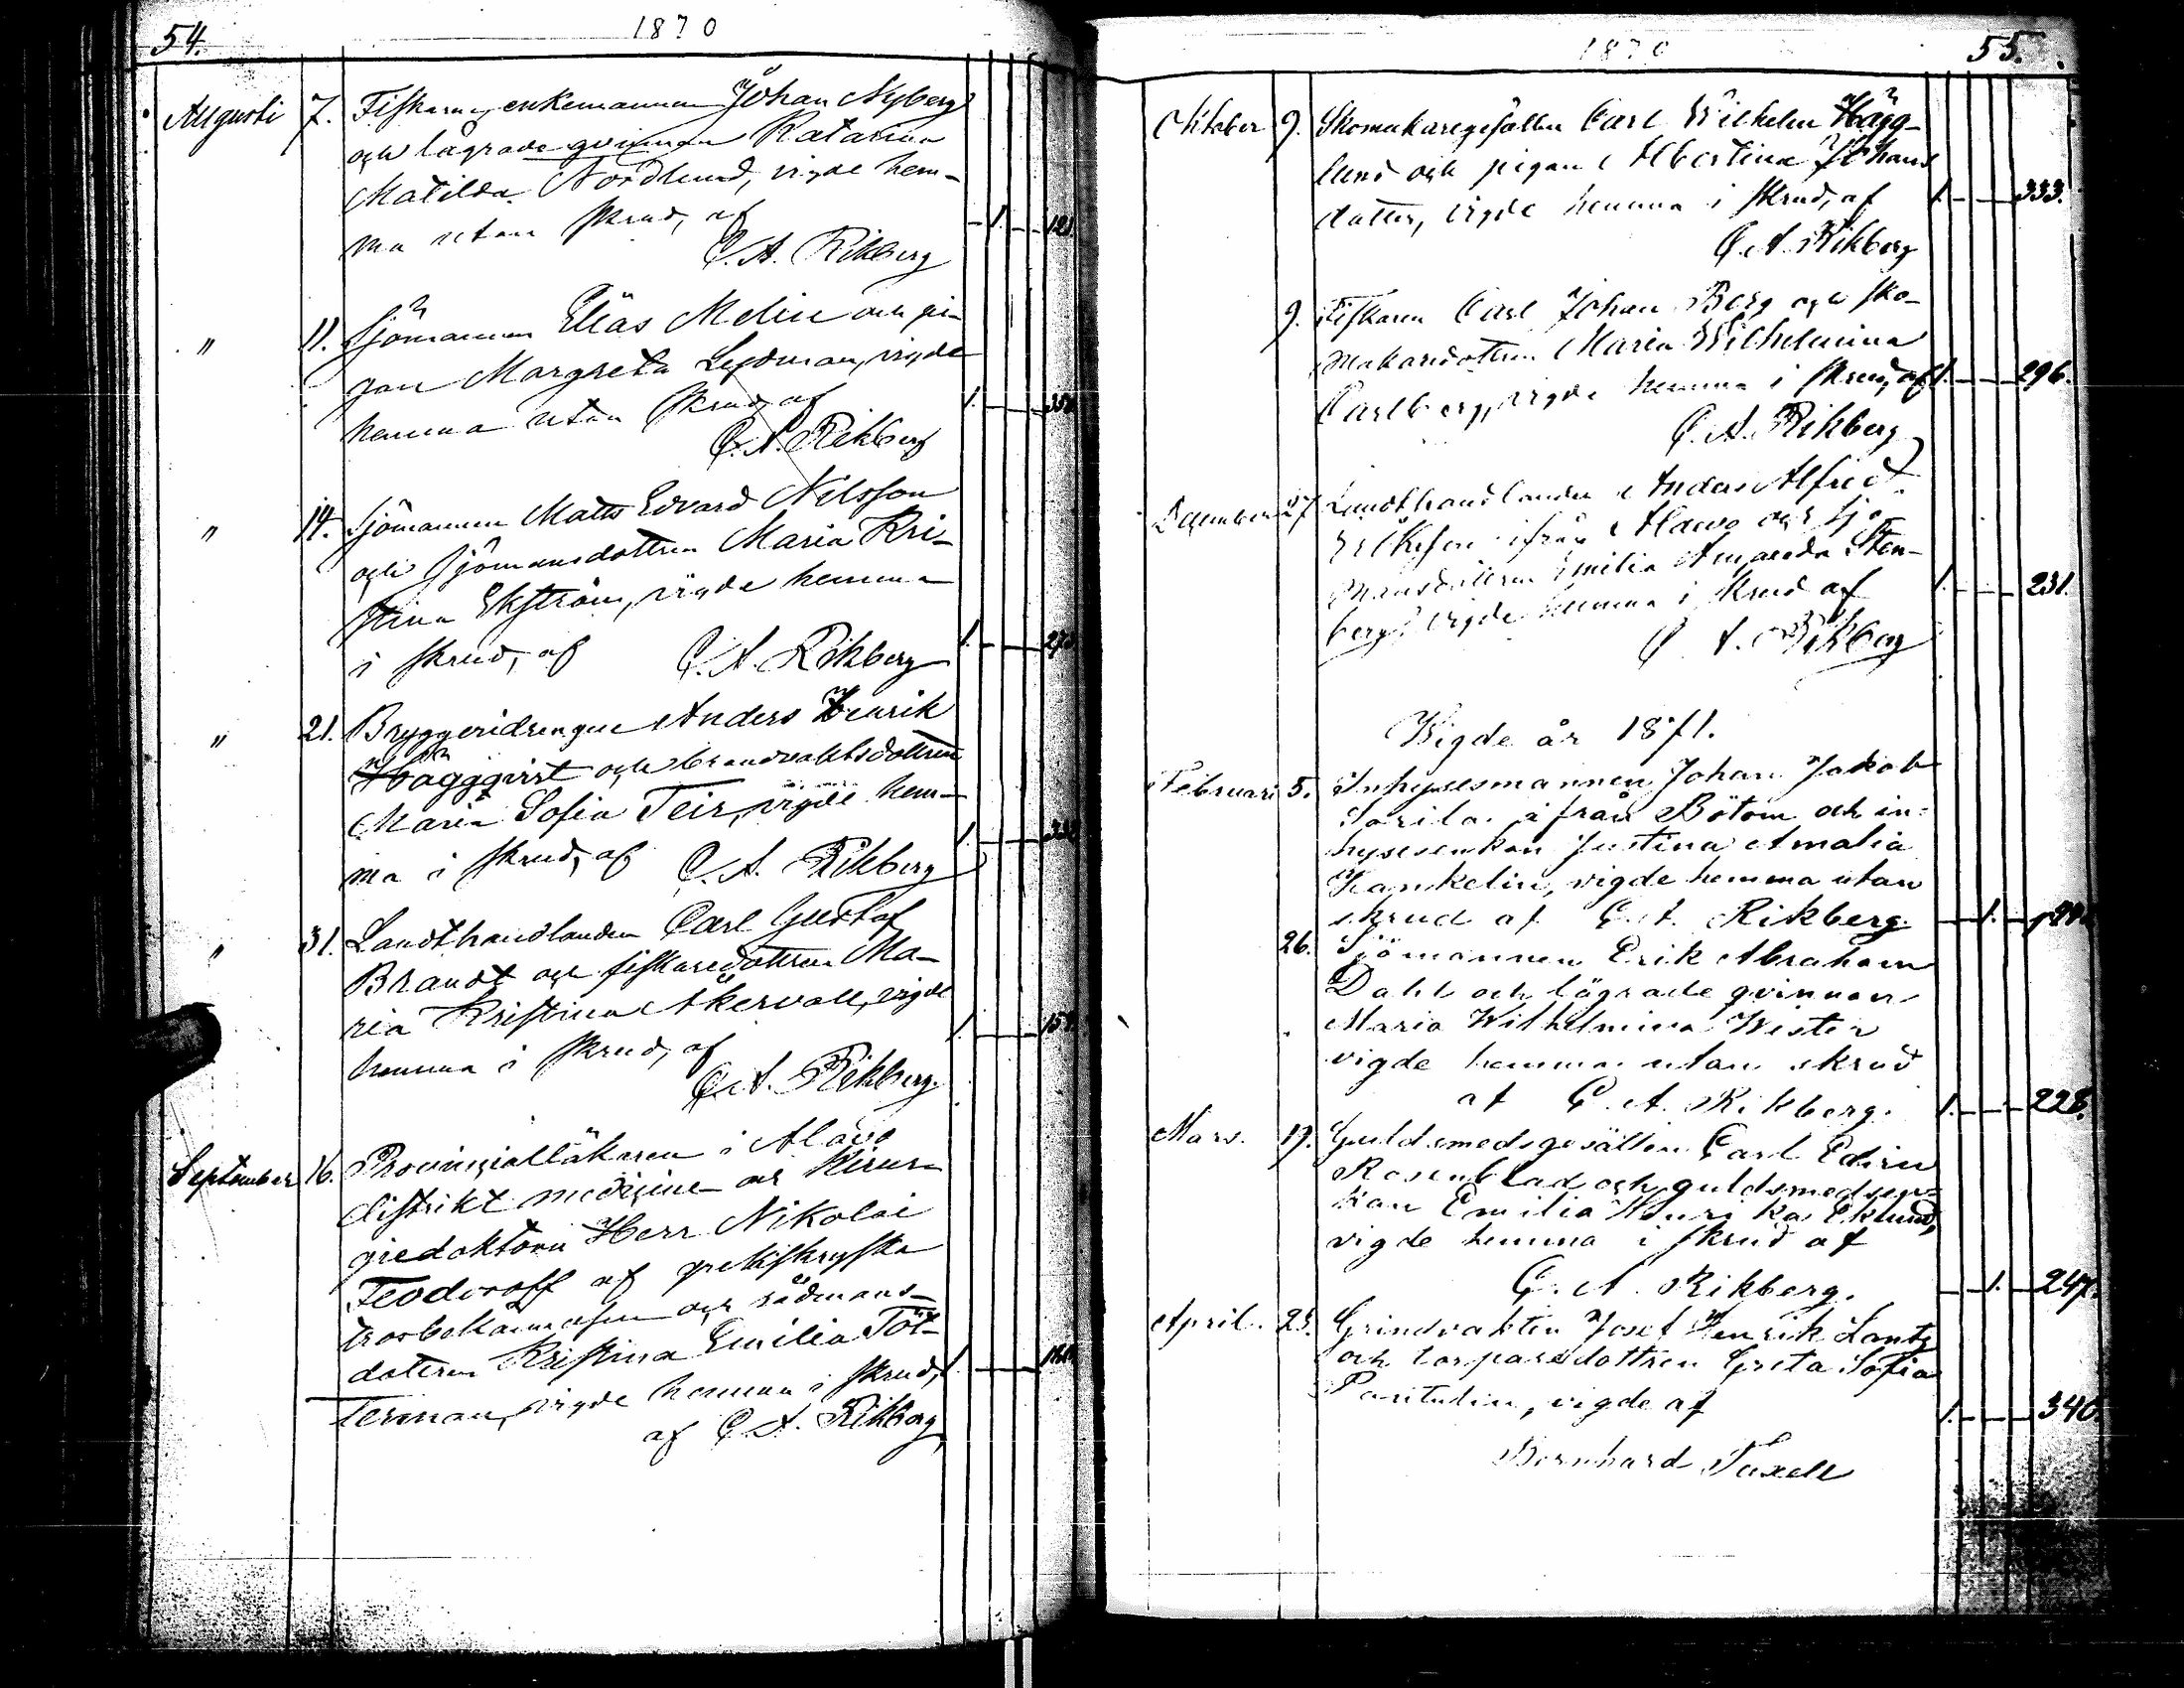 54.
1870
Augusti 7. Fiskaren, enkemannen Johan Nyberg
och lägrade qvinnan Katarina
Matilda Nordlund, vigde hem-
ma utan skrud, af 1. 121.
C. A. Rikberg
" 11. Sjömannen Elias Melin och pi-
gan Margreta Lydman, vigde
hemma utan skrud af 1.
C. A. Rikberg
" 14. Sjömannen Matts Edvard Nilsson
och sjömansdottren Maria Kri-
stina Ekström, vigde hemma
i skrud, af C. A. Rikberg 1.
" 21. Bryggeridrengen Anders Henrik
Häggqvist och brandvaktsdottren
Maria Sofia Teir, vigde hem-
ma i skrud, af C. A. Rikberg 1.
" 31. Landthandlanden Carl Gustaf
Brandt och fiskaredottren Ma-
ria Kristina Åkervall, vigde
hemma i skrud, af 1.
C. A. Rikberg
September 16. Provinzialläkaren i Alavo
distrikt medicine och kirur-
giedoktorn Herr Nikolai
Feodoroff af grekiskryska
trosbekännelsen och rådmans-
dottren Kristina Emilia Töt-
terman, vigde hemma i skrud, 1.
af C. A. Rikberg
1870
55.
Oktober 9. Skomakaregesällen Carl Wilhelm Hägg-
lund och pigan Albertina Johans
dotter, vigde hemma i skrud, af 1. 333.
C. A. Rikberg
9. Fiskaren Carl Johan Berg och sko-
makaredottren Maria Wilhelmina
Carlberg, vigde hemma i skrud, af 1. 296.
C. A. Rikberg
December 27 Landthandlanden Anders Alfred
Erikson ifrån Alavo och sjö-
mansdottren Emilia Amanda Sten-
berg vigde hemma i skrud af 1. 231.
C. A. Rikberg
Wigde år 1871.
Februari 5. Inhysesmannen Johan Jakob
Sorila ifrån Bötom och in-
hysesenkan Justina Amalia
Kankelin, vigde hemma utan
skrud af C. A. Rikberg. 1.
26. Sjömannen Erik Abraham
Dahl och lägrade qvinnan
Maria Wilhelmina Wister
vigde hemma utan skrud
af C. A. Rikberg. 1. 228.
Mars. 19. Guldsmedsgesällen Carl Edvin
Rosenblad och guldsmedsen-
kan Emilia Henrika Eklund,
vigde hemma i skrud af
C. A. Rikberg. 1. 247.
April. 23. Grindvakten Josef Henrik Lantz
och torparedottren Greta Sofia
Pantulin, vigde af 1. 340.
Bernhard Taxell